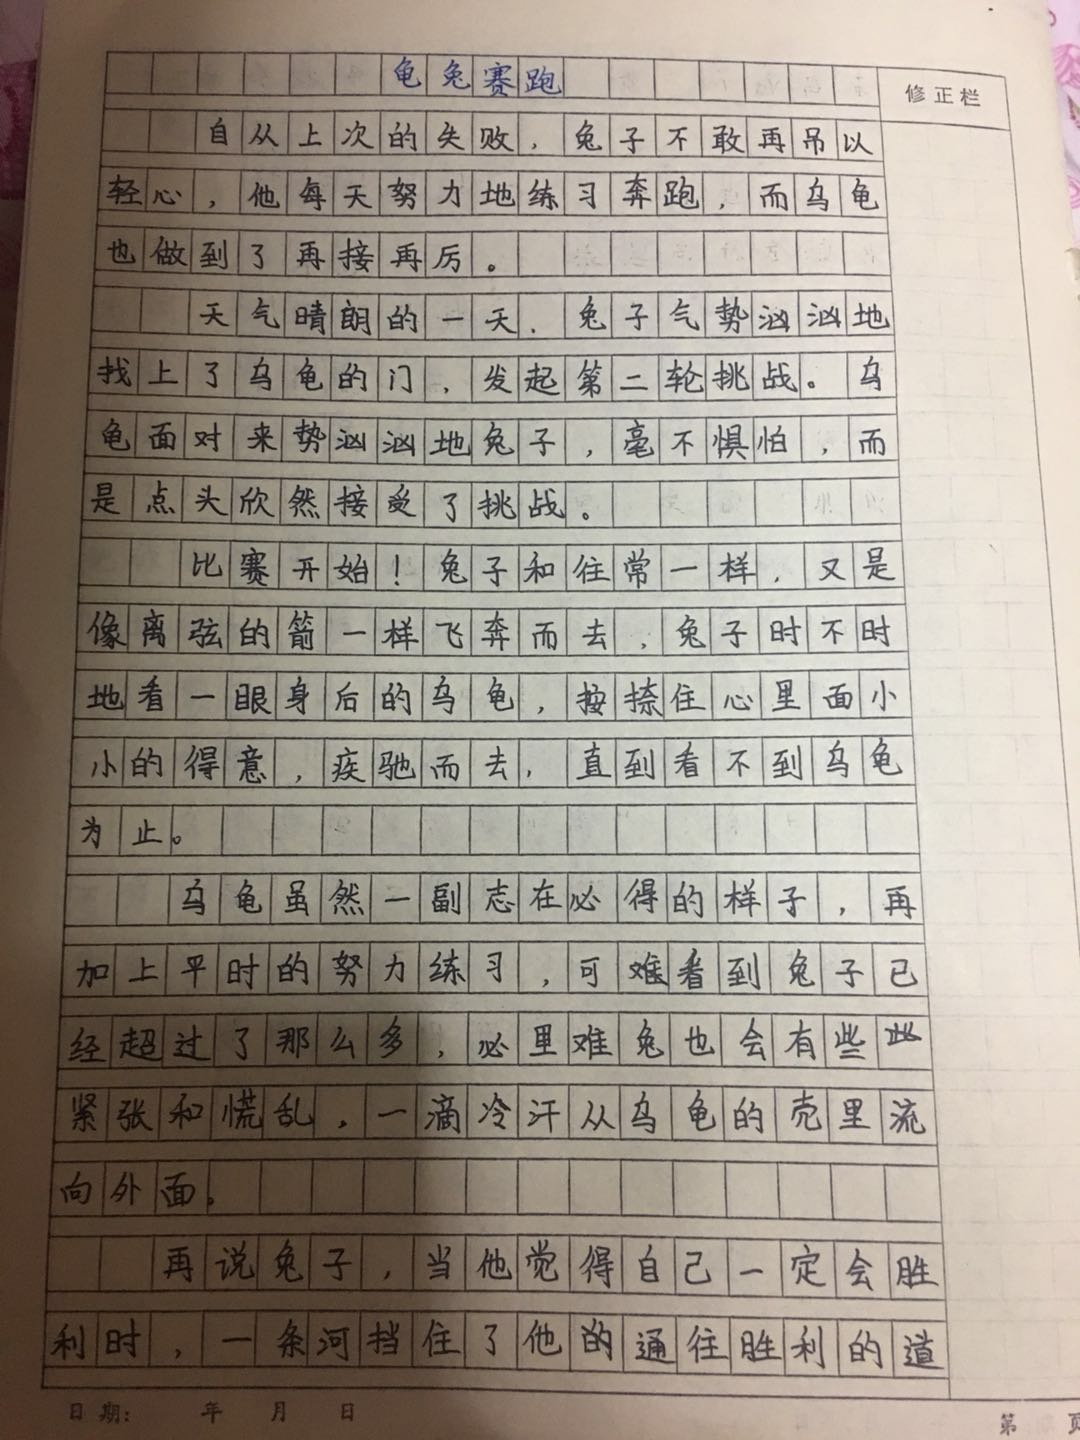 龟兔赛跑
修正栏
自从上次的失败,兔子不敢再吊以
轻心,他每天努力地练习奔跑,而乌龟
也做到了再接再厉。
天气晴朗的一天,兔子气势汹汹地
找上了乌龟的门,发起第二轮挑战。乌
龟面对来势汹汹地兔子,毫不惧怕,而
是点头欣然接受了挑战。
比赛开始!兔子和往常一样,又是
像离弦的箭一样飞奔而去,兔子时不时
地看一眼身后的乌龟,按捺住心里面小
小的得意,疾驰而去,直到看不到乌龟
为止。
乌龟虽然一副志在必得的样子,再
加上平时的努力练习,可难看到兔子已
经超过了那么多,必里难兔也会有些些
紧张和慌乱,一滴冷汗从乌龟的壳里流
向外面。
再说兔子,当他觉得自己一定会胜
利时,一条河挡住了他的通往胜利的道
日期: 年 月 日
第 页